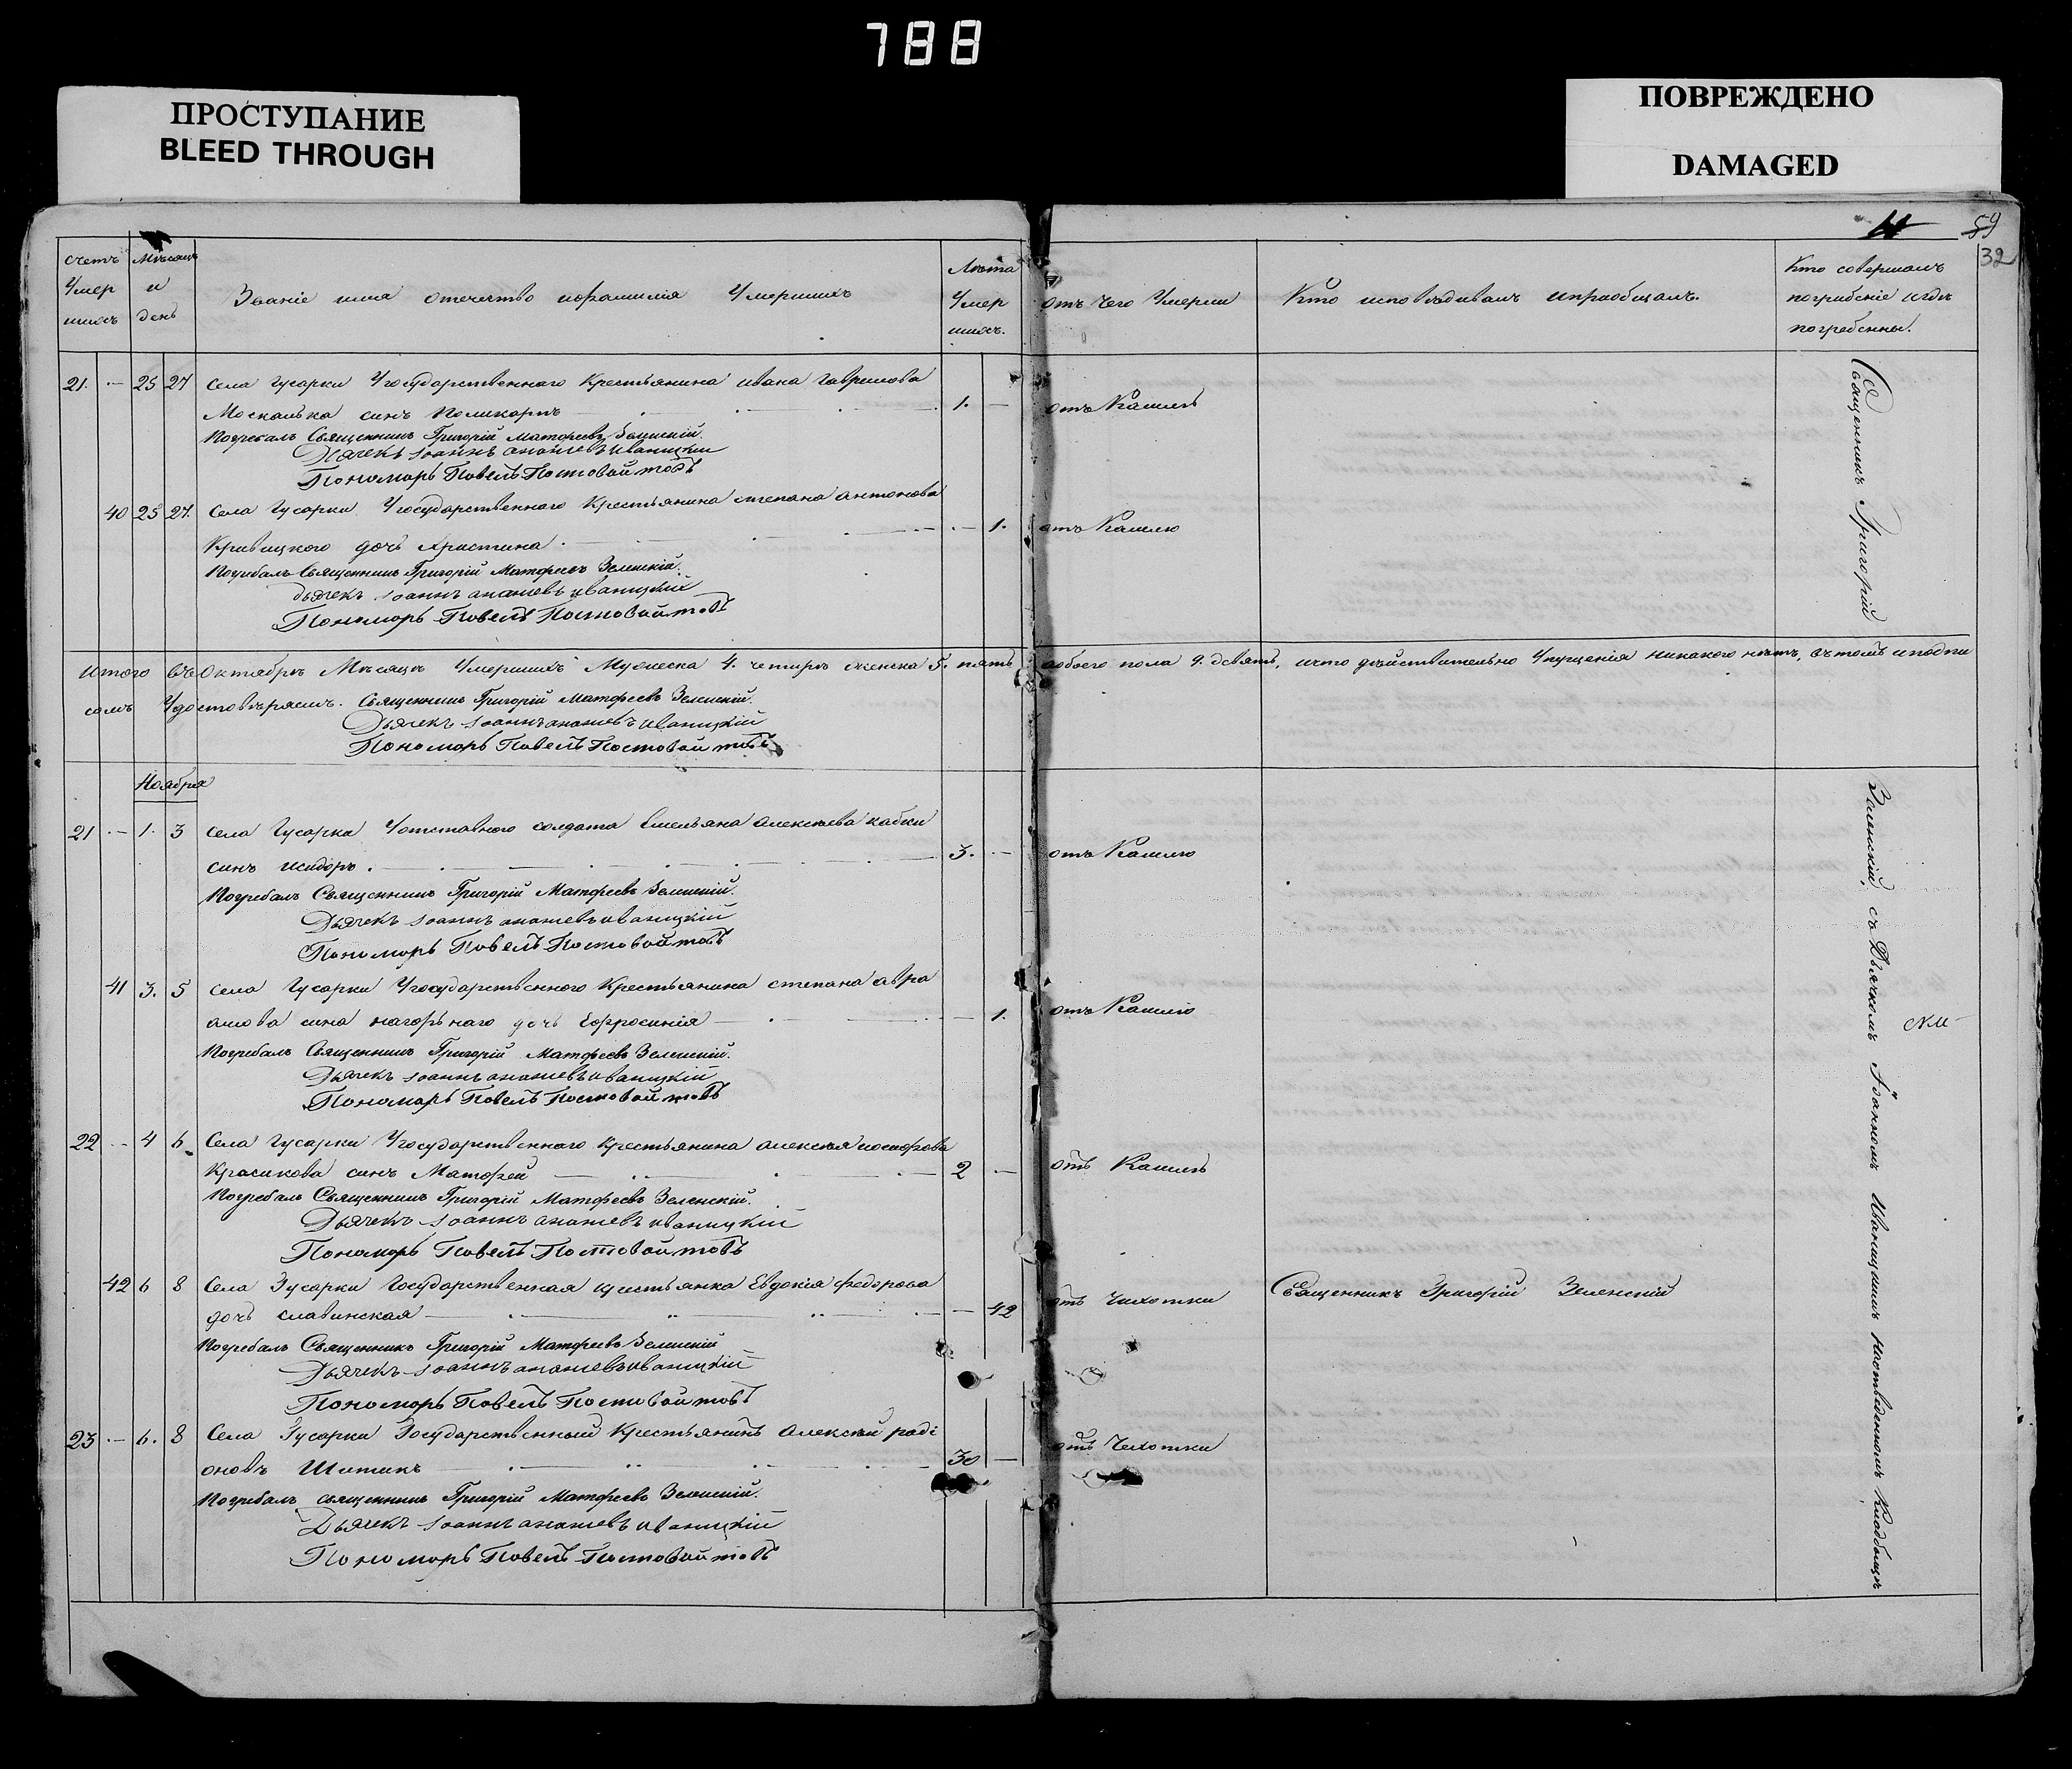 788
ПРОСТУПАНИЕ
BLEED THROUGH
ПОВРЕЖДЕНО
DAMAGED
59
32
счетъ Умер шихъ
Мѣсяцъ и день
Званіе имя отечество ифамилія Умершихъ
Лѣта Умер шихъ.
отъ чего Умерли
Кто исповѣдивалъ ипріобщалъ.
Кто совершалъ погребеніе игдѣ погребенны.
21. — 25 27 Села Гусарки Угосударственнаго Крестьянина ивана Гаврилова
Москалька синъ Поликарпъ 1. — отъ Кашлѣ
Погребалъ Священникъ Григорій Матфеевъ Зеленскій.
Дьячекъ Іоаннъ ананіевъ иваницкій
Пономарь Павелъ Постовойтовъ
40 25 27. Села Гусарки Угосударственнаго Крестьянина степана антонова
Кривицкого дочь Христина — 1. отъ Кашлю
Погребалъ Священникъ Григорій Матфеевъ Зеленскій.
Дьячекъ Іоаннъ ананіевъ иваницкій
Пономарь Павелъ Постовойтовъ
итого въ Октябрѣ Мѣсяцѣ Умершихъ Мужеска 4. четыре женска 5. пять аобоего пола 9. девять, ичто дѣйствительно Упущенія никакого нѣтъ, въ томъ иподпи
самъ Удостовѣряемъ. Священникъ Григорій Матфеевъ Зеленскій.
Дьячекъ Іоаннъ ананіевъ иваницкій
Пономарь Павелъ Постовойтовъ
Ноября
21 — 1. 3 Села Гусарка Уотставного солдата Емельяна алексѣева кабки
синъ Исидоръ. 3. — отъ Кашлю
Погребалъ Священникъ Григорій Матфеевъ Зеленскій.
Дьячекъ Іоаннъ ананіевъ иваницкій
Пономарь Павелъ Постовойтовъ
41 3. 5 Села Гусарки Угосударственного Крестьянина степана авра
амова сина нагорьнаго дочь Ефросинія — 1. отъ Кашлю
Погребалъ Священникъ Григорій Матфеевъ Зеленскій.
Дьячекъ Іоаннъ ананіевъ иваницкій
Пономарь Павелъ Постовойтовъ
22 — 4 6 Села Гусарки Угосударственнаго Крестьянина алексѣя иосифова
Красикова синъ Матфей 2 — отъ Кашлѣ
Погребалъ Священникъ Григорій Матфеевъ Зеленскій.
Дьячекъ Іоаннъ ананіевъ иваницкій
Пономарь Павелъ Постовойтовъ
42 6 8 Села Гусарки Государственная крестьянка Евдокія федорова
дочь славинская — 42 отъ чихотки Священникъ Григорій Зеленскій
Погребалъ Священникъ Григорій Матфеевъ Зеленскій
Дьячекъ Іоаннъ ананіевъ иваницкій
Пономарь Павелъ Постовойтовъ
23 — 6. 8 Села Гусарки Государственный Крестьянинъ Алексѣй раді
оновъ Шитикъ 30 — отъ Чехотки
Погребалъ священникъ Григорій Матфеевъ Зеленскій.
Дьячекъ Іоаннъ ананіевъ иваницкій
Пономарь Павелъ Постовойтовъ
Священникъ Григорій
Зеленскій, съ Дьячкомъ Іоанномъ Иваницкимъ Наотведенномъ Кладбищѣ